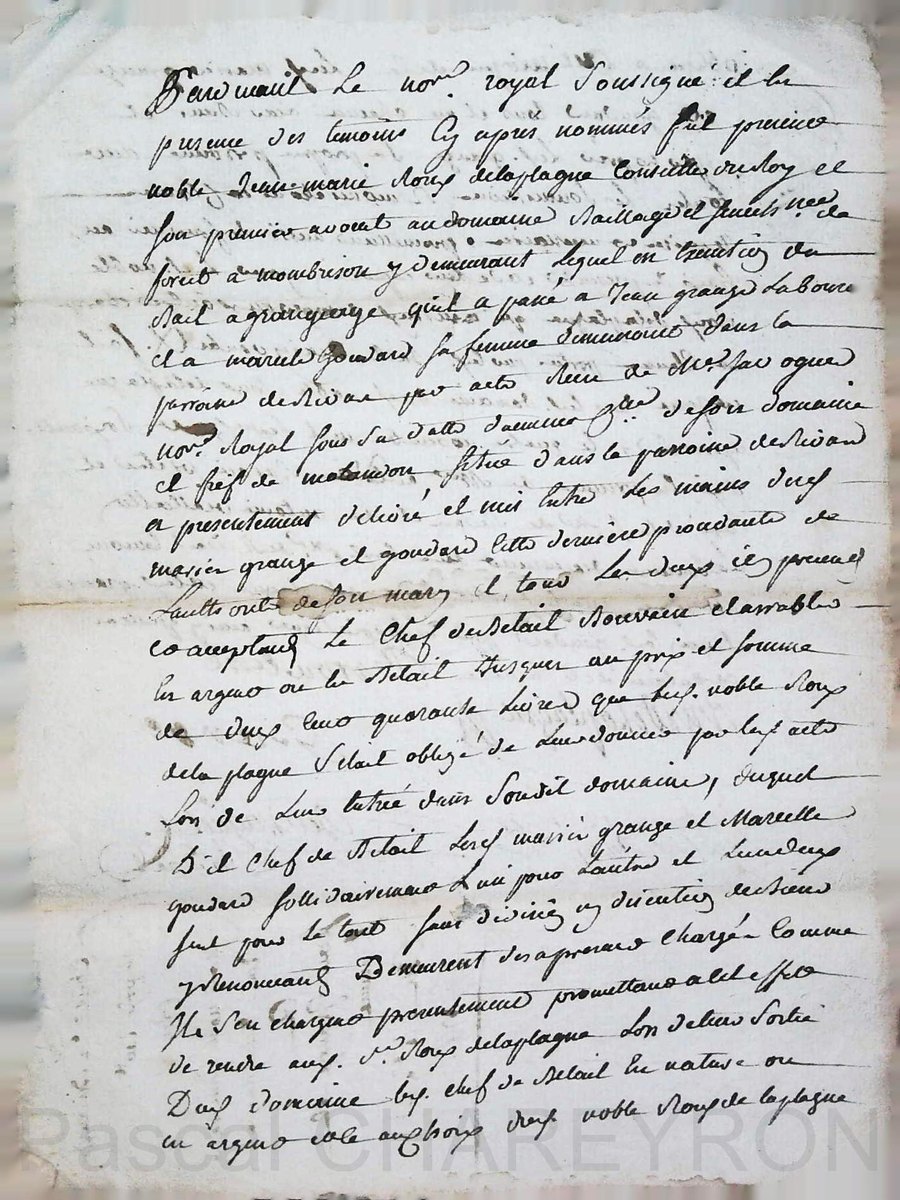 Pardevant Le no.re royal Soussigné et En
presence des temoins Cy apres nommés fut present
noble Jean-marie Roux delaplagne Conseiller du Roy et
son premier avocat au domaine Baillage et senech.née de
forest a montbrison y demeurant Lequel en Execution du
Bail a grangeage qu'il a passé a Jean grange Laboureur
et a marcelle Goudard sa femme demeurant dans la
parroisse de Rivas par acte Recu de M.e
no.re Royal sous sa datte de son domaine
et fief de matandon situé dans la parroisse de Rivas
a presentement delivré et mis Entre Les mains desd
mariés grange et goudard Cette derniere procedante de
Lauthorité de son mary et tous Les deux icy presents
et acceptants Le Chef de Betail
En argent ou En Betail Jusques au prix et somme
de deux Cent quarante Livres que led. noble Roux
dela plagne s'etait obligé de Leur donner par led acte
Lors de Leur Entrée dans Soudit domaine, duquel
D.it Chef de Betail Lesd mariés grange et Marcelle
goudard sollidairement L'un pour L'autre et L'un deux
seul pour Le tout sans division ny discution de biens
y Renonceants Demeurent des apresent Chargés Comme
Ils s'en chargent presentement promettant a cet effet
de rendre aud. S.r Roux delaplagne Lors de leur Sortie
Dud domaine led. chef de Betail En nature ou
en argent au choix dud. noble Roux de laplagne
Pascal CHAREYRON